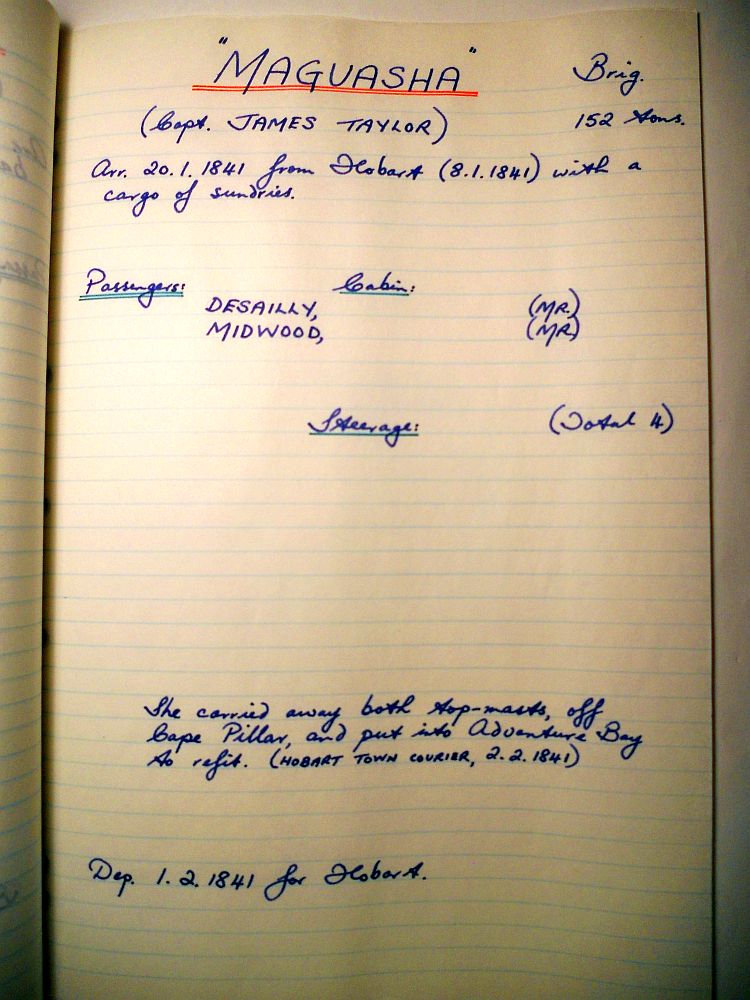 "MAGUASHA" Brig.
(Capt. JAMES TAYLOR) 152 tons.
Arr. 20.1.1841 from Hobart (8.1.1841) with a
cargo of sundries.
Passengers: Cabin:
DESAILLY, (MR.)
MIDWOOD, (MR)
Steerage: (Total 4)
She carried away both top-masts, off
Cape Pillar, and put into Adventure Bay
to refit. (HOBART TOWN COURIER, 2.2.1841)
Dep. 1.2.1841 for Hobart.